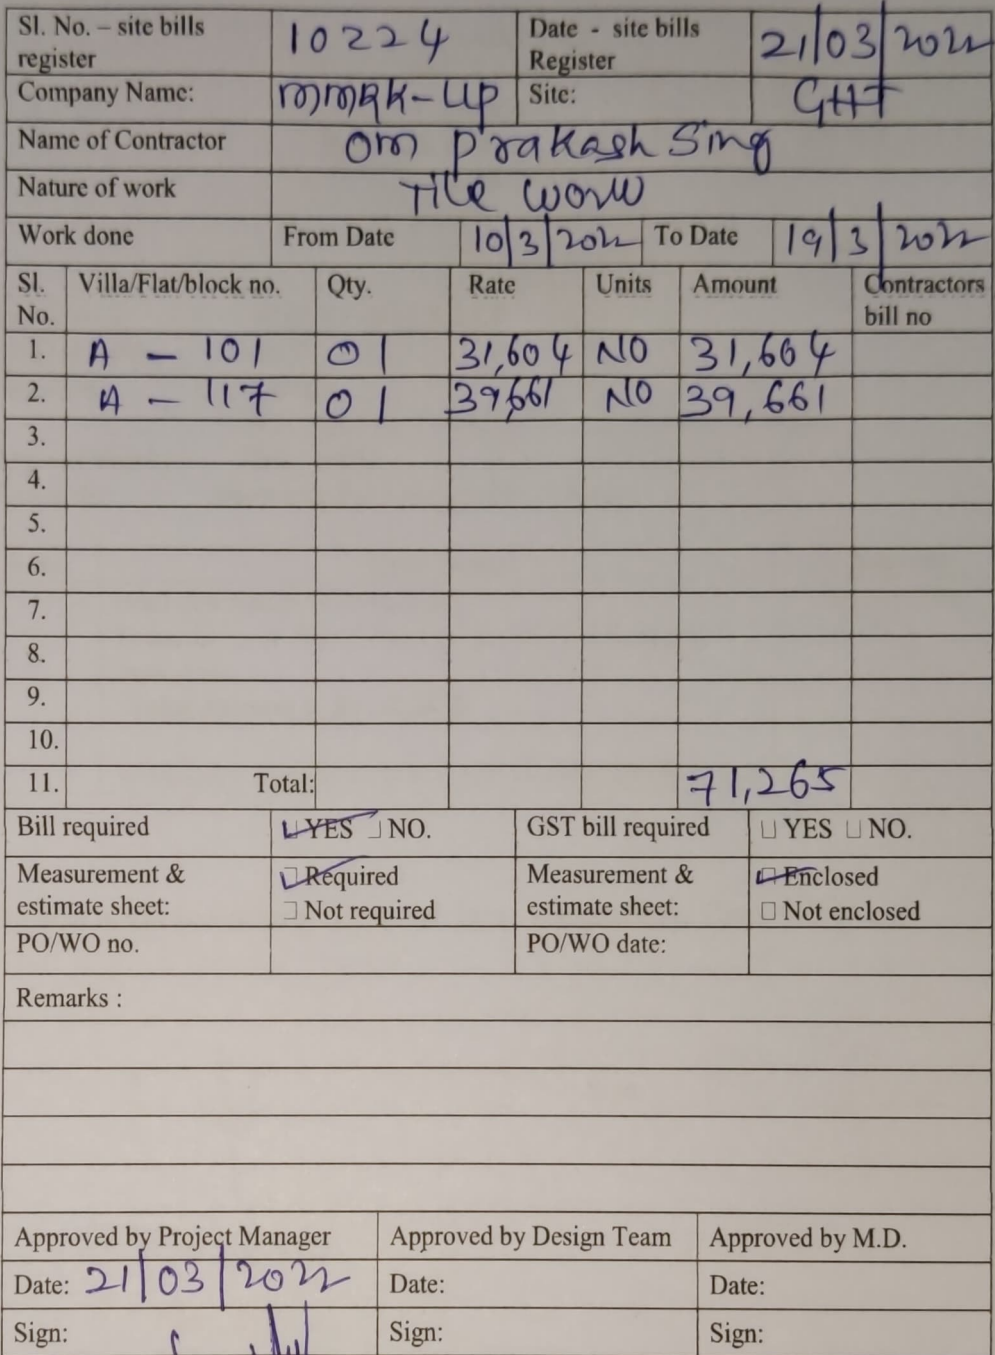 Sl. No. – site bills register 10224 Date - site bills Register 21/03/2022
Company Name: MMRK-UP Site: GHT
Name of Contractor Om Prakash Sing
Nature of work Tile work
Work done From Date 10/3/2022 To Date 19/3/2022
Sl. No. Villa/Flat/block no. Qty. Rate Units Amount Contractors bill no
1. A - 101 01 31,604 NO 31,604
2. A - 117 01 39,661 NO 39,661
3.
4.
5.
6.
7.
8.
9.
10.
11. Total: 71,265
Bill required YES NO. GST bill required YES NO.
Measurement & estimate sheet: Required Not required Measurement & estimate sheet: Enclosed Not enclosed
PO/WO no. PO/WO date:
Remarks :
Approved by Project Manager Approved by Design Team Approved by M.D.
Date: 21/03/2022 Date: Date:
Sign: Sign: Sign: